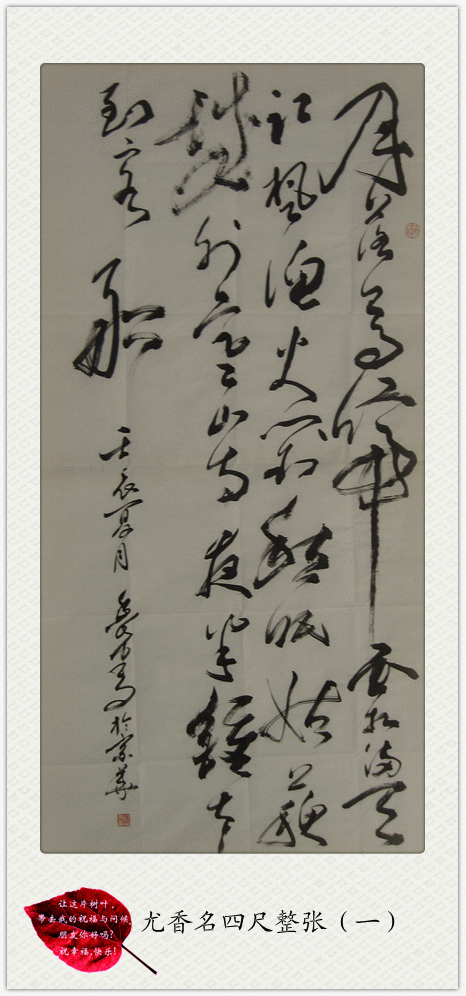 月落烏啼霜满天
江枫渔火對愁眠姑蘇
城外寒山寺夜半鐘声
到客船
壬辰夏月 於京華
让这片树叶,
带去我的祝福与问候
朋友你好吗?
祝幸福,快乐!
尤香名四尺整张（一）